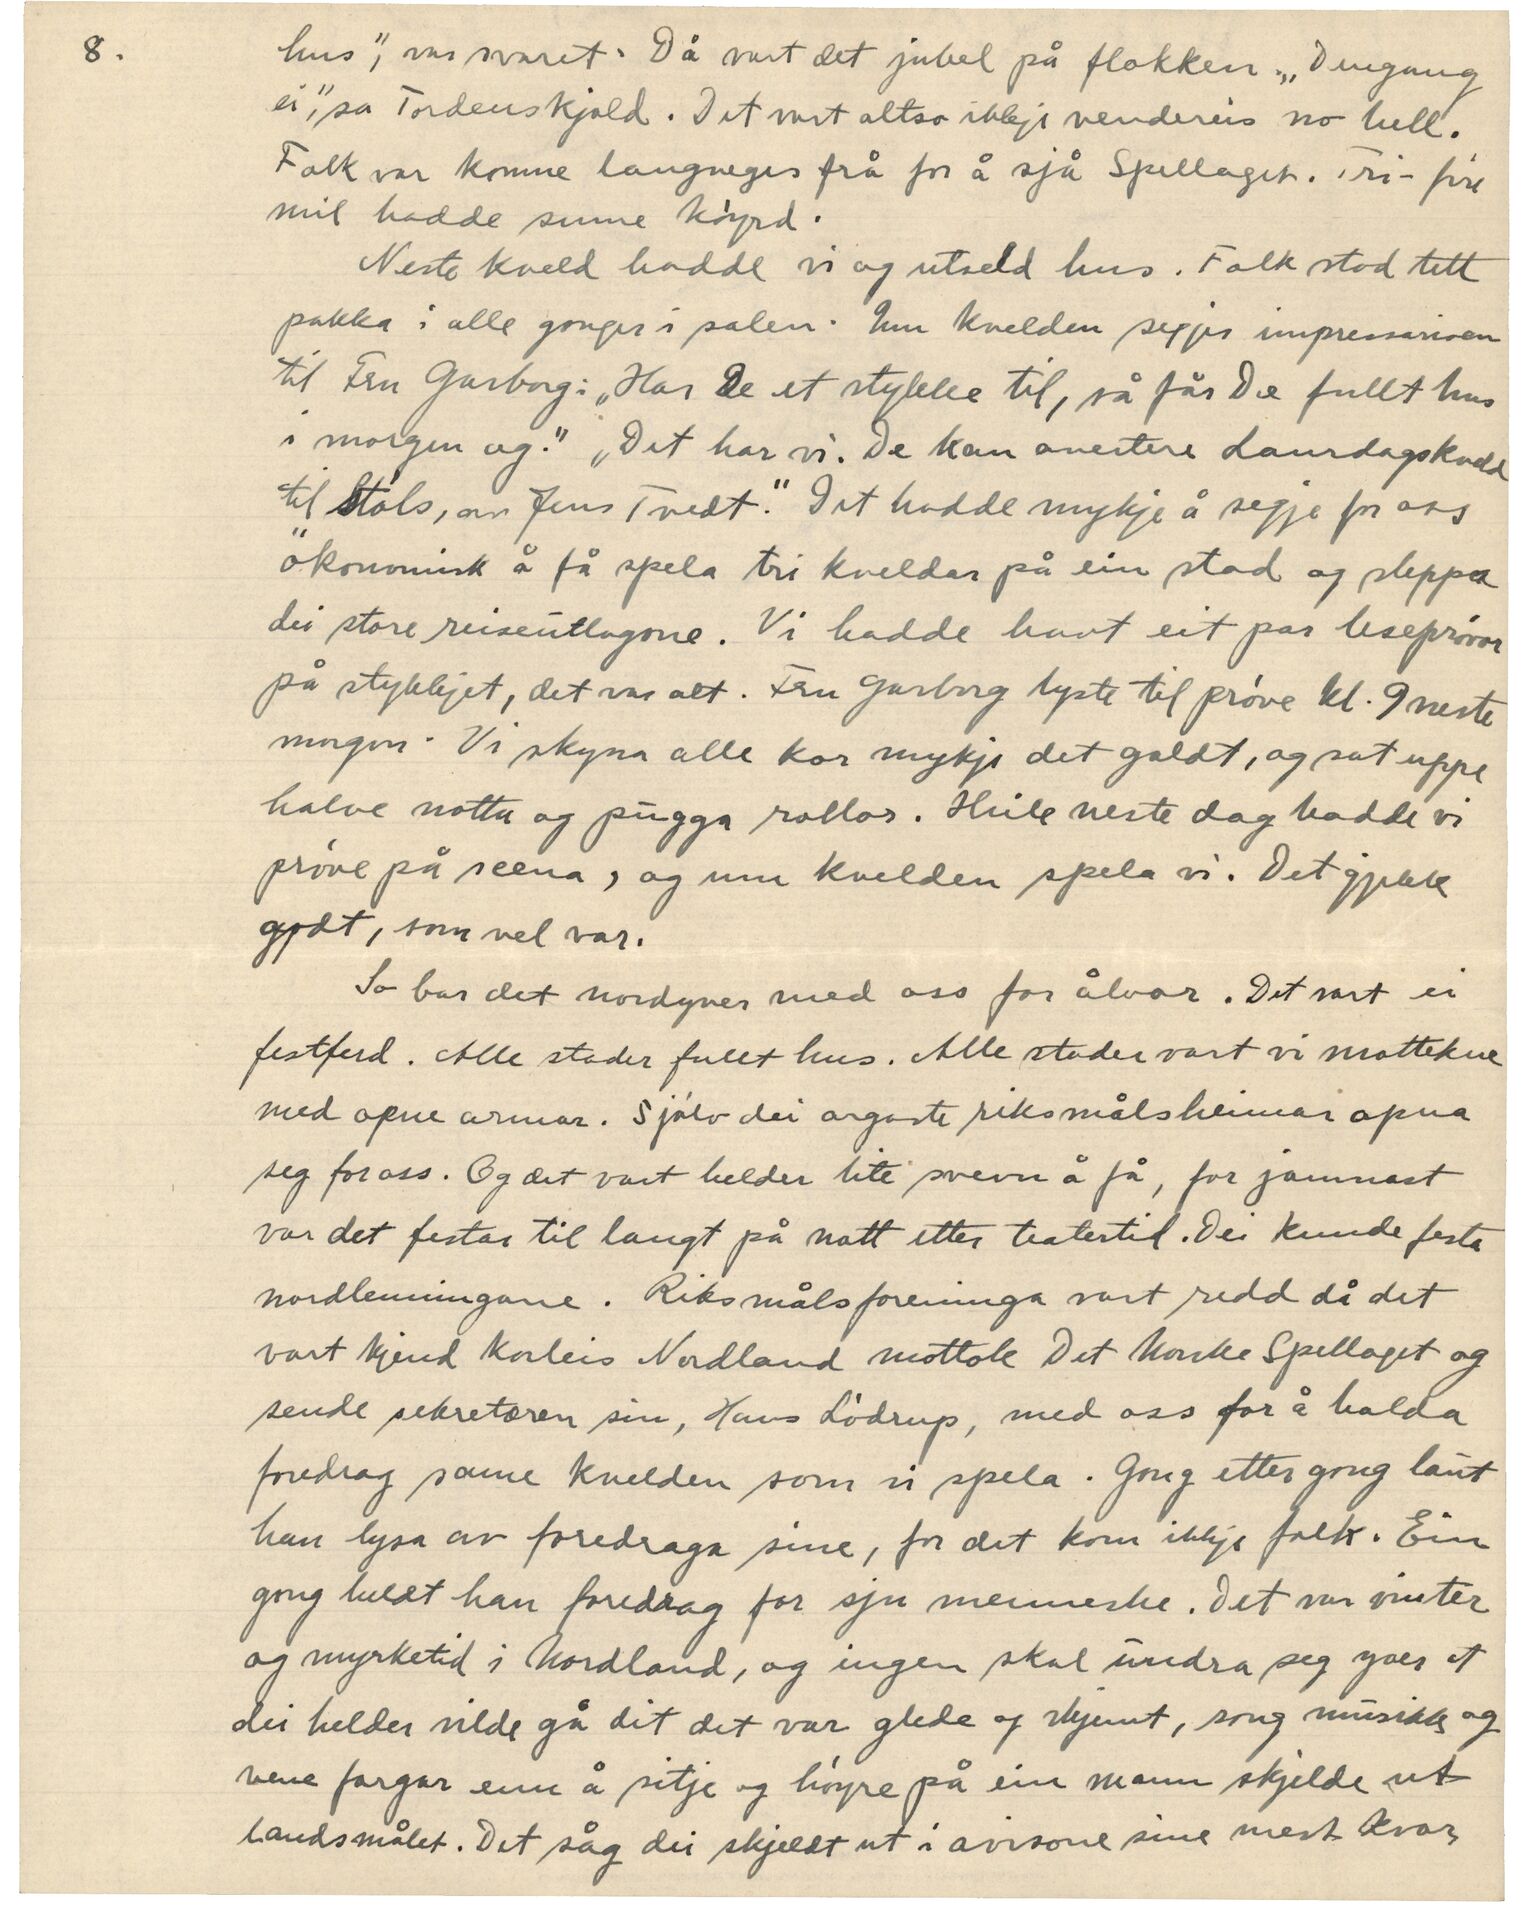 8. hus", var svaret. Då vart det jubel på flokken. "Dengang
ei", sa Tordenskjold. Det vart altso ikkje vendereis no hell.
Folk var komne langveges frå for å sjå Spellaget. Tri-fire
mil hadde sume köyrd.
Neste kveld hadde vi og utseld hus. Folk stod tett
pakka i alle gonger i salen. Um kvelden segjer impressarioen
til Fru Garborg: "Har De et stykke til, så får De fullt hus
i morgen og." "Det har vi. De kan avertere Laurdagskveld
til Støls, av Jens Tvedt." Det hadde mykje å segje for oss
ökonomisk å få spela tri kveldar på ein stad og sleppa
dei store reiseutlogone. Vi hadde havt eit par leseprövor
på stykkjet, det var alt. Fru Garborg lyste til pröve kl. 9 neste
morgon. Vi skyna alle kor mykje det galdt, og sat uppe
halve notta og pugga rollor. Heile neste dag hadde vi
pröve på scena, og um kvelden spela vi. Det gjekk
godt, som vel var.
So bar det nordyver med oss for ålvor. Det vart ei
festferd. Alle stader fullt hus. Alle stader vart vi mottekne
med opne armar. Sjölv dei argaste riksmålsheimar opna
seg for oss. Og det vart helder lite svevn å få, for jamnast
var det festar til langt på nott etter teatertid. Dei kunde festa
nordlenningane. Riksmålsforeninga vart redd då det
vart kjend korleis Nordland mottok Det Norske Spellaget og
sende sekretæren sin, Hans Lödrup, med oss for å halda
foredrag same kvelden som vi spela. Gong etter gong laut
han lysa av foredraga sine, for det kom ikkje folk. Ein
gong heldt han foredrag for sju menneske. Det var vinter
og myrketid i Nordland, og ingen skal undra seg yver at
dei helder vilde gå dit det var glede og skjemt, song musikk og
vene fargar enn å sitje og höyre på ein mann skjelde ut
landsmålet. Det såg dei skjeldt ut i avisone sine mest kvar